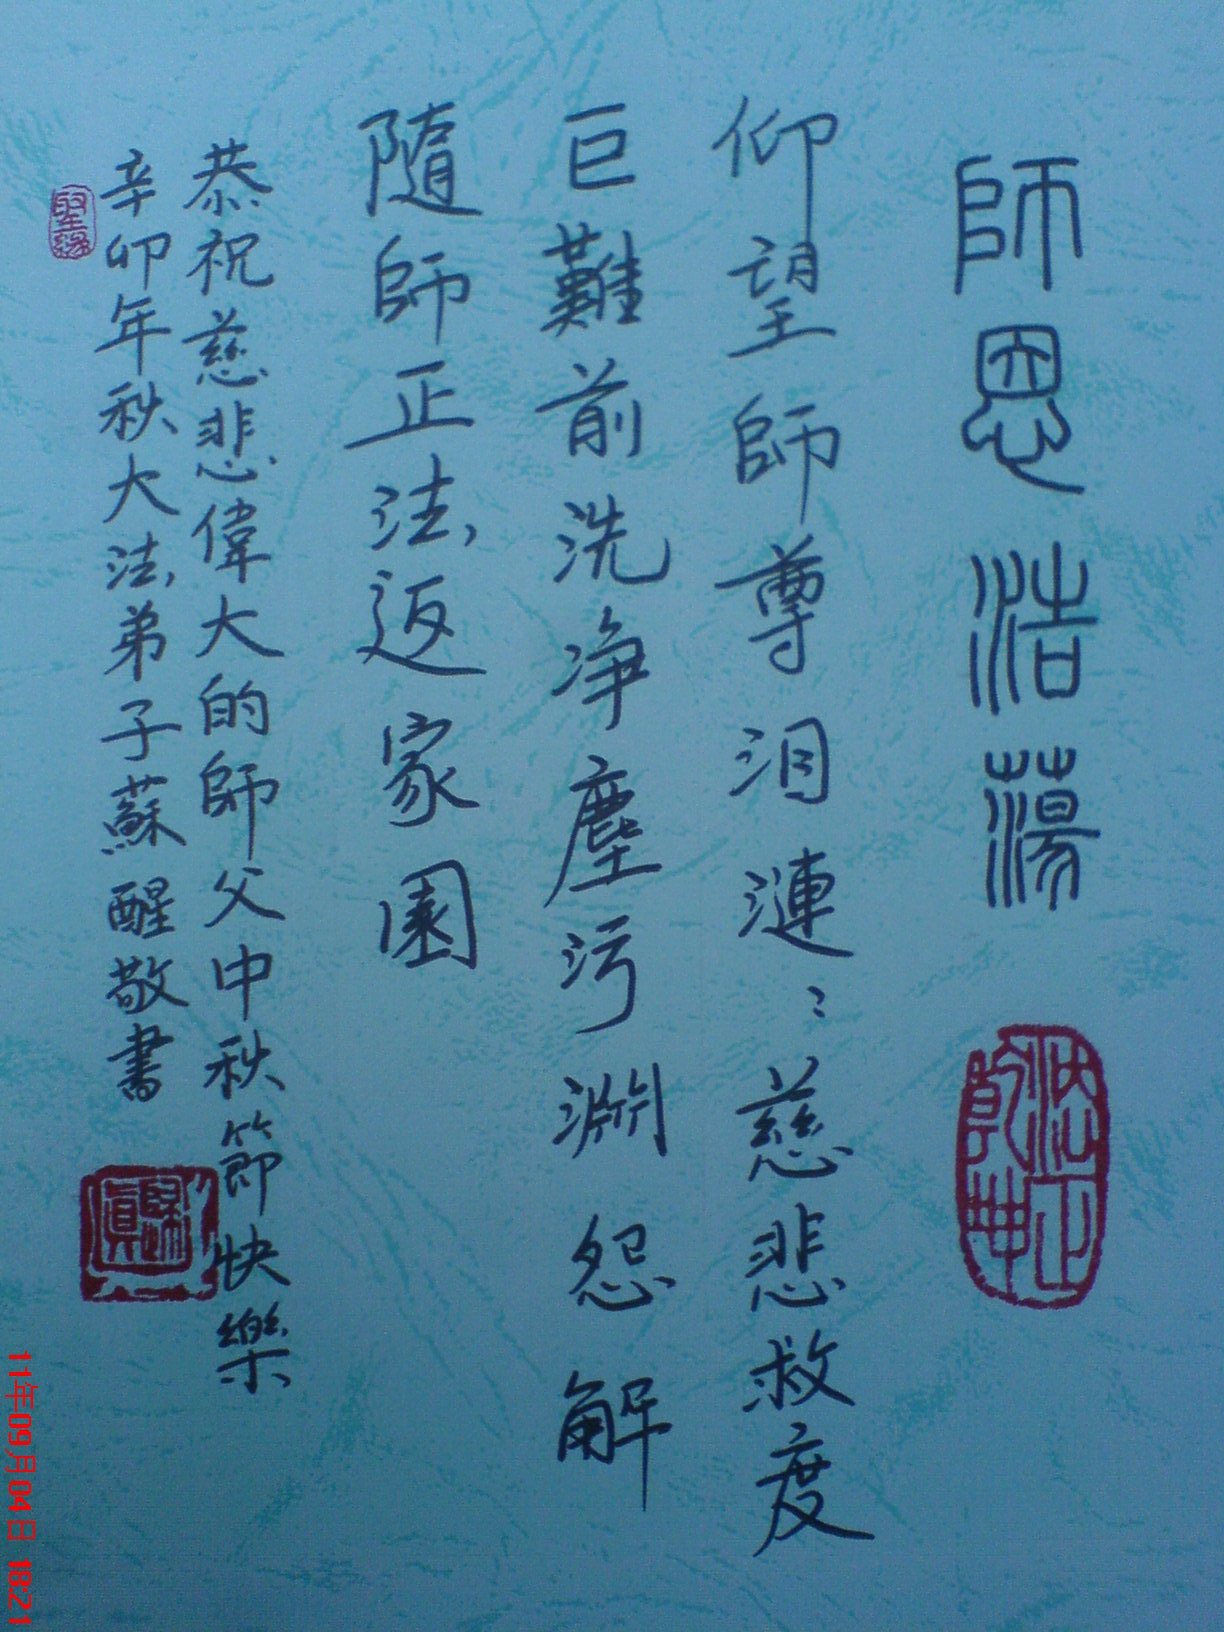 師恩浩蕩
法正乾坤
仰望師尊泪漣漣慈悲救度
巨難前洗净塵污淵怨解
隨師正法返家園
恭祝慈悲偉大的師父中秋節快樂
辛卯年秋大法弟子蘇醒敬書
歸真
聖緣
11年09月04日 18:21